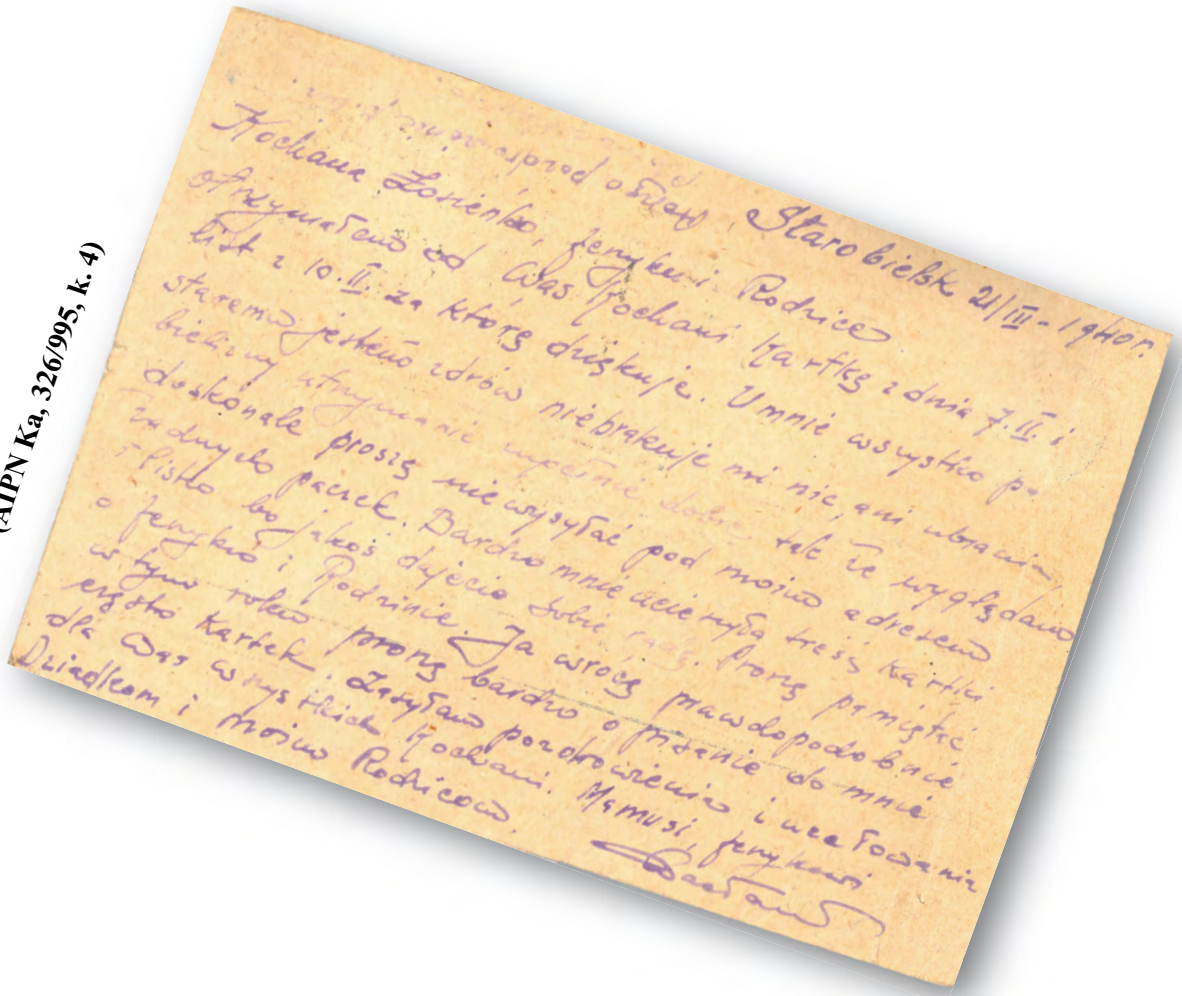 (AIPN Ka, 326/995, k. 4)
Starobielsk 21/III - 1940r.
Kochana Zosieńko, Jerzyku i Rodzice
otrzymałem od Was Kochani Kartkę z dnia 7.II. i
list z 10.II. za którą dziękuję. U mnie wszystko po
staremu jestem zdrów niebrakuje mi nic ani ubrania
bielizny utrzymanie zupełnie dobre tak że wyglądam
doskonale proszę niewysyłać pod moim adresem
żadnych paczek. Bardzo mnie ucieszyła treść Kartki
bo jakoś dajecie sobie radę. Proszę pamiętać
o Jerzyku i Rodzinie. Ja wrócę prawdopodobnie
w tym roku proszę bardzo o pisanie do mnie
często Kartek. Zasyłam pozdrowienia i ucałowania
dla Was wszystkich Kochani. Mamusi, Jerzykowi
Dziadkom i Moim Rodzicom.